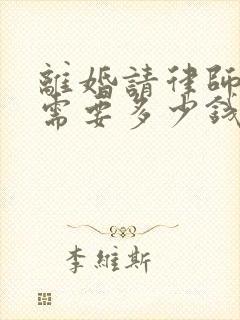 離婚請律師
需要多少錢
李維斯